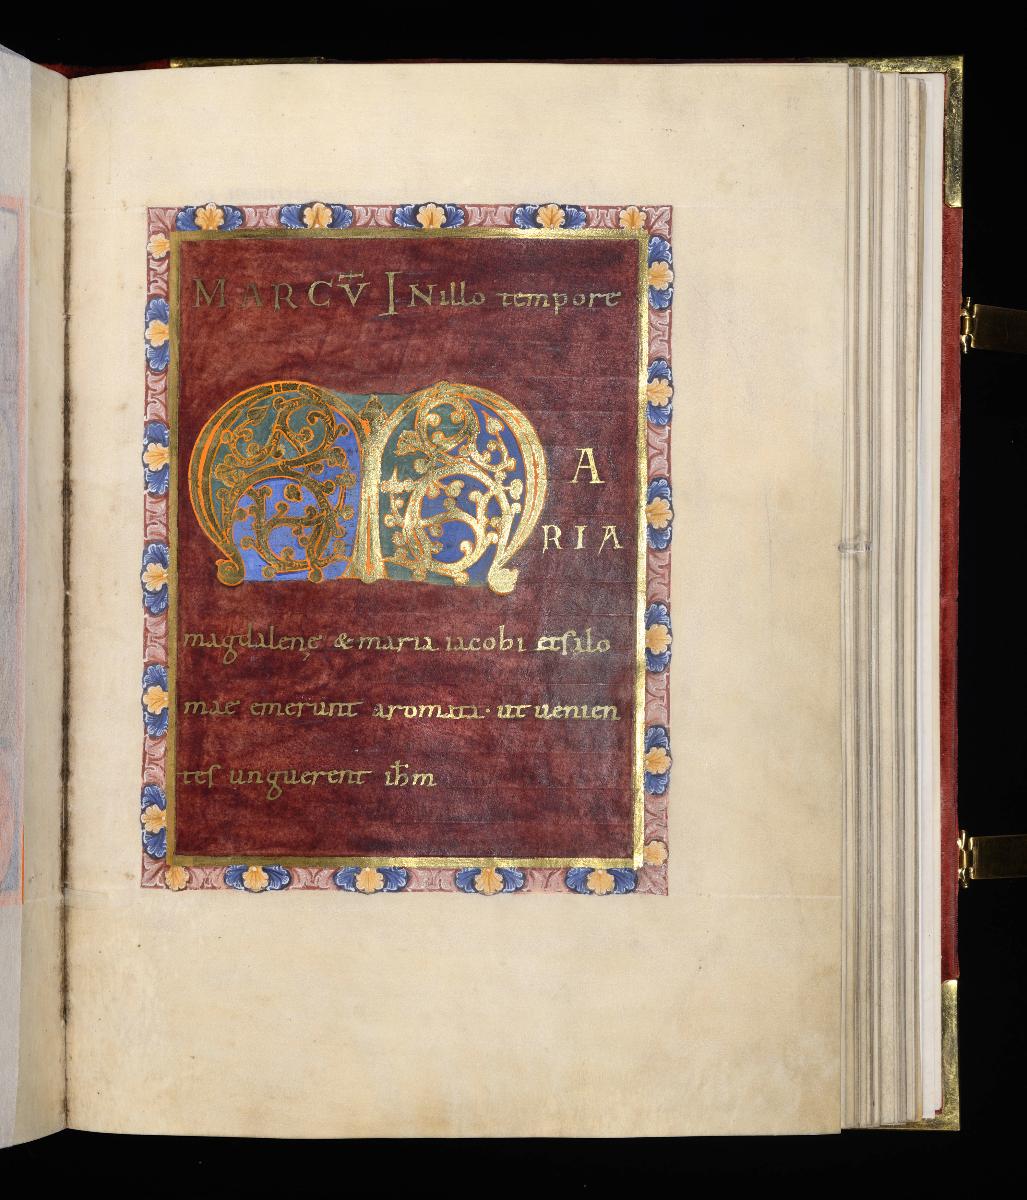 MARCV̄ INillo tempore
MA
RIA
magdalenę & maria iacobi et salo
mae emerunt aromata · ut uenien
tes unguerent ih̅m